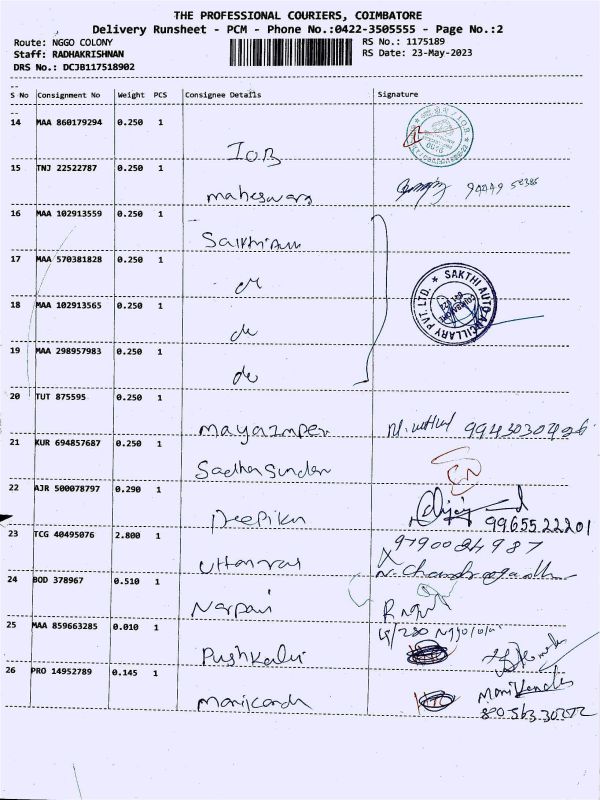 THE PROFESSIONAL COURIERS, COIMBATORE
Delivery Runsheet - PCM - Phone No.:0422-3505555 - Page No.:2
Route: NGGO COLONY
RS No.: 1175189
Staff: RADHAKRISHNAN
RS Date: 23-May-2023
DRS No.: DCJB117518902
S No Consignment No Weight PCS Consignee Details Signature
14 MAA 860179294 0.250 1 IOB
15 TNJ 22522787 0.250 1 maheswara 94449 52386
16 MAA 102913559 0.250 1
17 MAA 570381828 0.250 1
SAKTHI AUTO ANCILLARY PVT. LTD.
COIMBATORE
18 MAA 102913565 0.250 1 do
19 MAA 298957983 0.250 1 do
20 TUT 875595 0.250 1
21 KUR 694857687 0.250 1 Sadha Sunder
22 AJR 500078797 0.290 1 Deepika 9965522201
23 TCG 40495076 2.800 1 9790084987
N. Chandragandhi
24 BOD 378967 0.510 1
25 MAA 859663285 0.010 1
26 PRO 14952789 0.145 1 manikanda